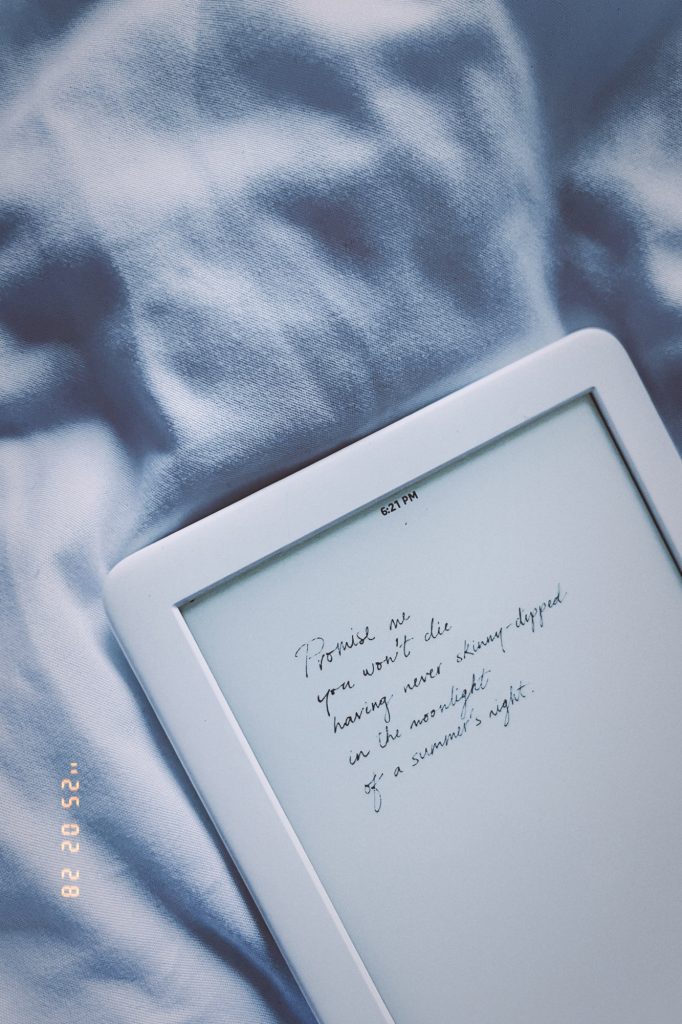 6:21 PM
Promise me
you won't die
having never skinny-dipped
in the moonlight
of a summer's night.